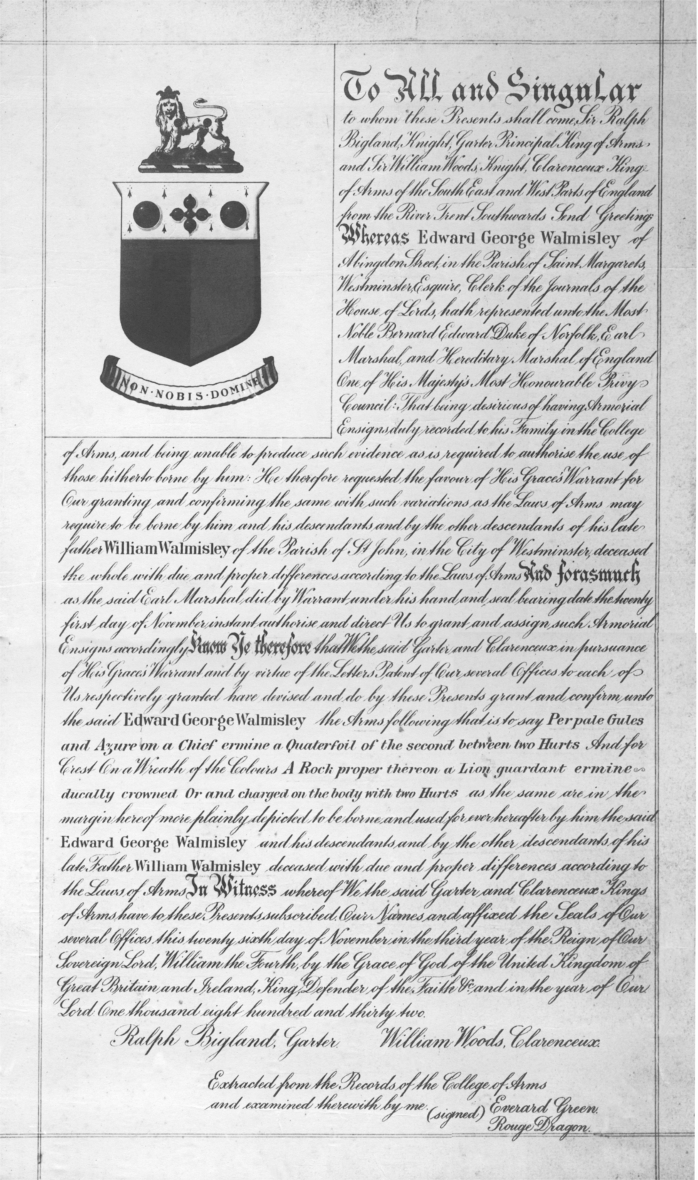 NON·NOBIS·DOMINE
To All and Singular
to whom these Presents shall come, Sir Ralph
Bigland, Knight, Garter Principal King of Arms
and Sir William Woods, Knight, Clarenceux King
of Arms of the South East and West Parts of England
from the River Trent Southwards Send Greeting
Whereas Edward George Walmisley of
Abingdon Street, in the Parish of Saint Margarets,
Westminster, Esquire, Clerk of the Journals of the
House of Lords, hath represented unto the Most
Noble Bernard Edward Duke of Norfolk, Earl
Marshal, and Hereditary Marshal of England
One of His Majesty's Most Honourable Privy
Council: That being desirious of having Armorial
Ensigns duly recorded to his Family in the College
of Arms, and being unable to produce such evidence as is required to authorise the use of
those hitherto borne by him: He therefore requested the favour of His Grace's Warrant for
Our granting and confirming the same with such variations as the Laws of Arms may
require to be borne by him and his descendants and by the other descendants of his late
father William Walmisley of the Parish of St John, in the City of Westminster, deceased
the whole with due and proper differences according to the Laws of Arms And forasmuch
as the said Earl Marshal did by Warrant under his hand and seal bearing date the twenty
first day of November instant authorise and direct Us to grant and assign such Armorial
Ensigns accordingly Know Ye therefore that We the said Garter and Clarenceux in pursuance
of His Grace's Warrant and by virtue of the Letters Patent of Our several Offices to each of
Us respectively granted have devised and do by these Presents grant and confirm unto
the said Edward George Walmisley the Arms following that is to say Per pale Gules
and Azure on a Chief ermine a Quaterfoil of the second between two Hurts And for
Crest On a Wreath of the Colours A Rock proper thereon a Lion guardant ermine
ducally crowned Or and charged on the body with two Hurts as the same are in the
margin hereof more plainly depicted to be borne and used for ever hereafter by him the said
Edward George Walmisley and his descendants and by the other descendants of his
late Father William Walmisley deceased with due and proper differences according to
the Laws of Arms, In Witness whereof We the said Garter and Clarenceux Kings
of Arms have to these Presents subscribed Our Names and affixed the Seals of Our
several Offices this twenty sixth day of November in the third year of the Reign of Our
Sovereign Lord, William the Fourth, by the Grace of God of the United Kingdom of
Great Britain and Ireland, King, Defender of the Faith &c, and in the year of Our
Lord One thousand eight hundred and thirty two.
Ralph Bigland, Garter. William Woods, Clarenceux.
Extracted from the Records of the College of Arms
and examined therewith by me
(signed) Everard Green.
Rouge Dragon.